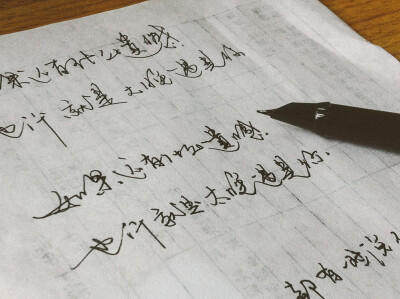 果还有什么遗憾
也许就是太晚遇见你
如果还有什么遗憾.
也许就是太晚遇见你.
都有